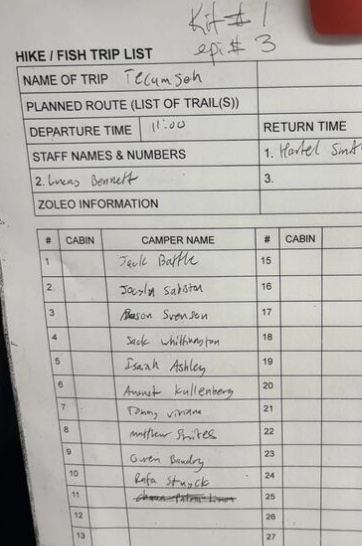 Kit # 1
epi # 3
HIKE / FISH TRIP LIST
NAME OF TRIP Tecumseh
PLANNED ROUTE (LIST OF TRAIL(S))
DEPARTURE TIME 11:00 RETURN TIME
STAFF NAMES & NUMBERS 1. Hartel
2. Lucas Bennett 3.
ZOLEO INFORMATION
# CABIN CAMPER NAME # CABIN
1 Jack Battle 15
2 Joselyn Sabiston 16
3 Svenson 17
4 Jack Whittington 18
5 Isaah Ashley 19
6 August Kullenberg 20
7 Tommy Viviano 21
8 Matthew Stites 22
9 Owen Baudry 23
10 Rafa Struyck 24
11 25
12 26
13 27